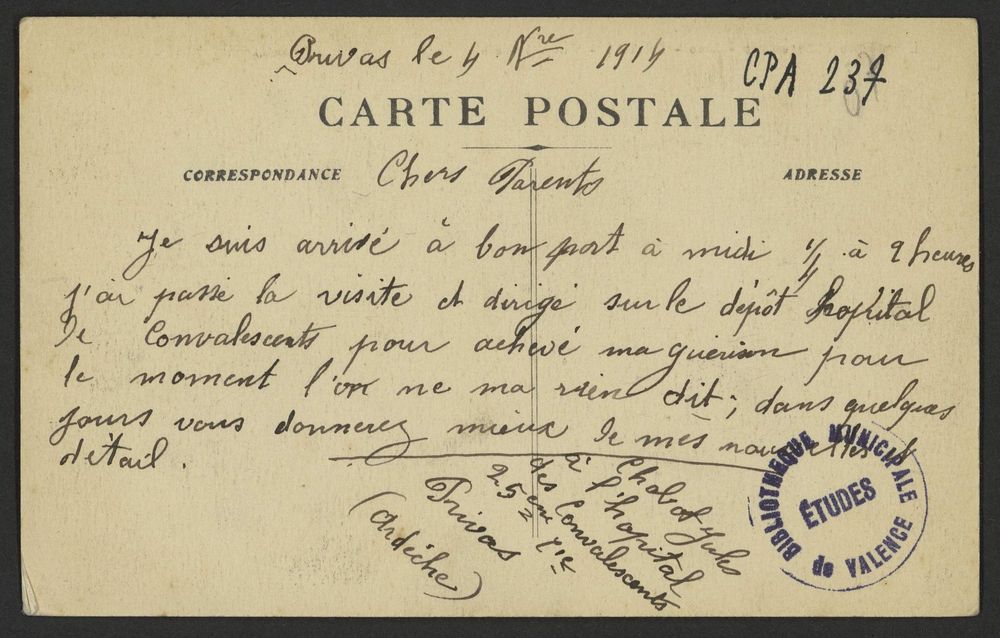 Privas le 4 Nre 1914
CPA 237
CARTE POSTALE
CORRESPONDANCE
ADRESSE
Chers Parents
Je suis arrivé à bon port à midi 1/4 à 2 heures
j'ai passé la visite et dirigé sur le dépôt hopital
de Convalescents pour achevé ma guérison pour
le moment l'on ne ma rien dit; dans quelques
jours vous donnerez mieux de mes nouvelles
détail.
Jules
à l'hopital
des Convalescents
25ème Cie
Privas
(Ardèche)
BIBLIOTHEQUE MUNICIPALE
de VALENCE
ÉTUDES